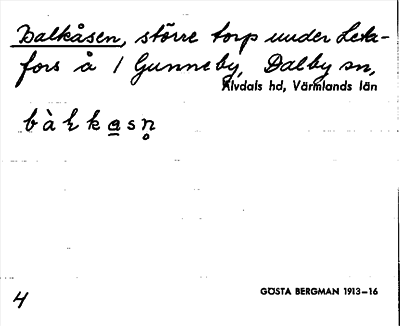 Balkåsen, större torp under Leta-
fors å / Gunneby, Dalby sn,
Älvdals hd, Värmlands län
b à ɫ k a s n̥
GÖSTA BERGMAN 1913–16
4